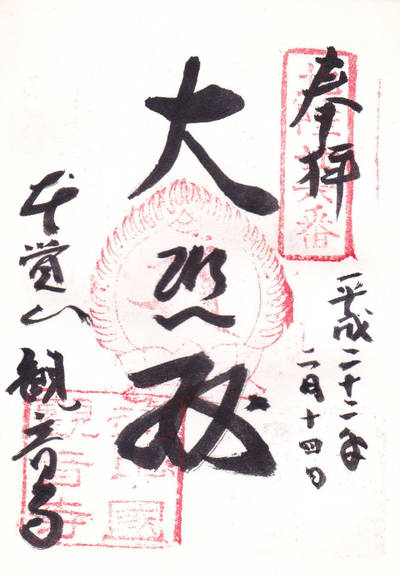 奉拝
平成二十二年
二月十四日
大悲殿
本覚山
観音寺